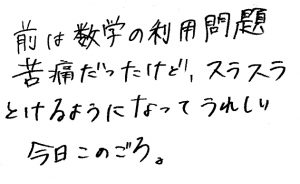 前は数学の利用問題
苦痛だったけど、スラスラ
とけるようになってうれしい
今日このごろ。